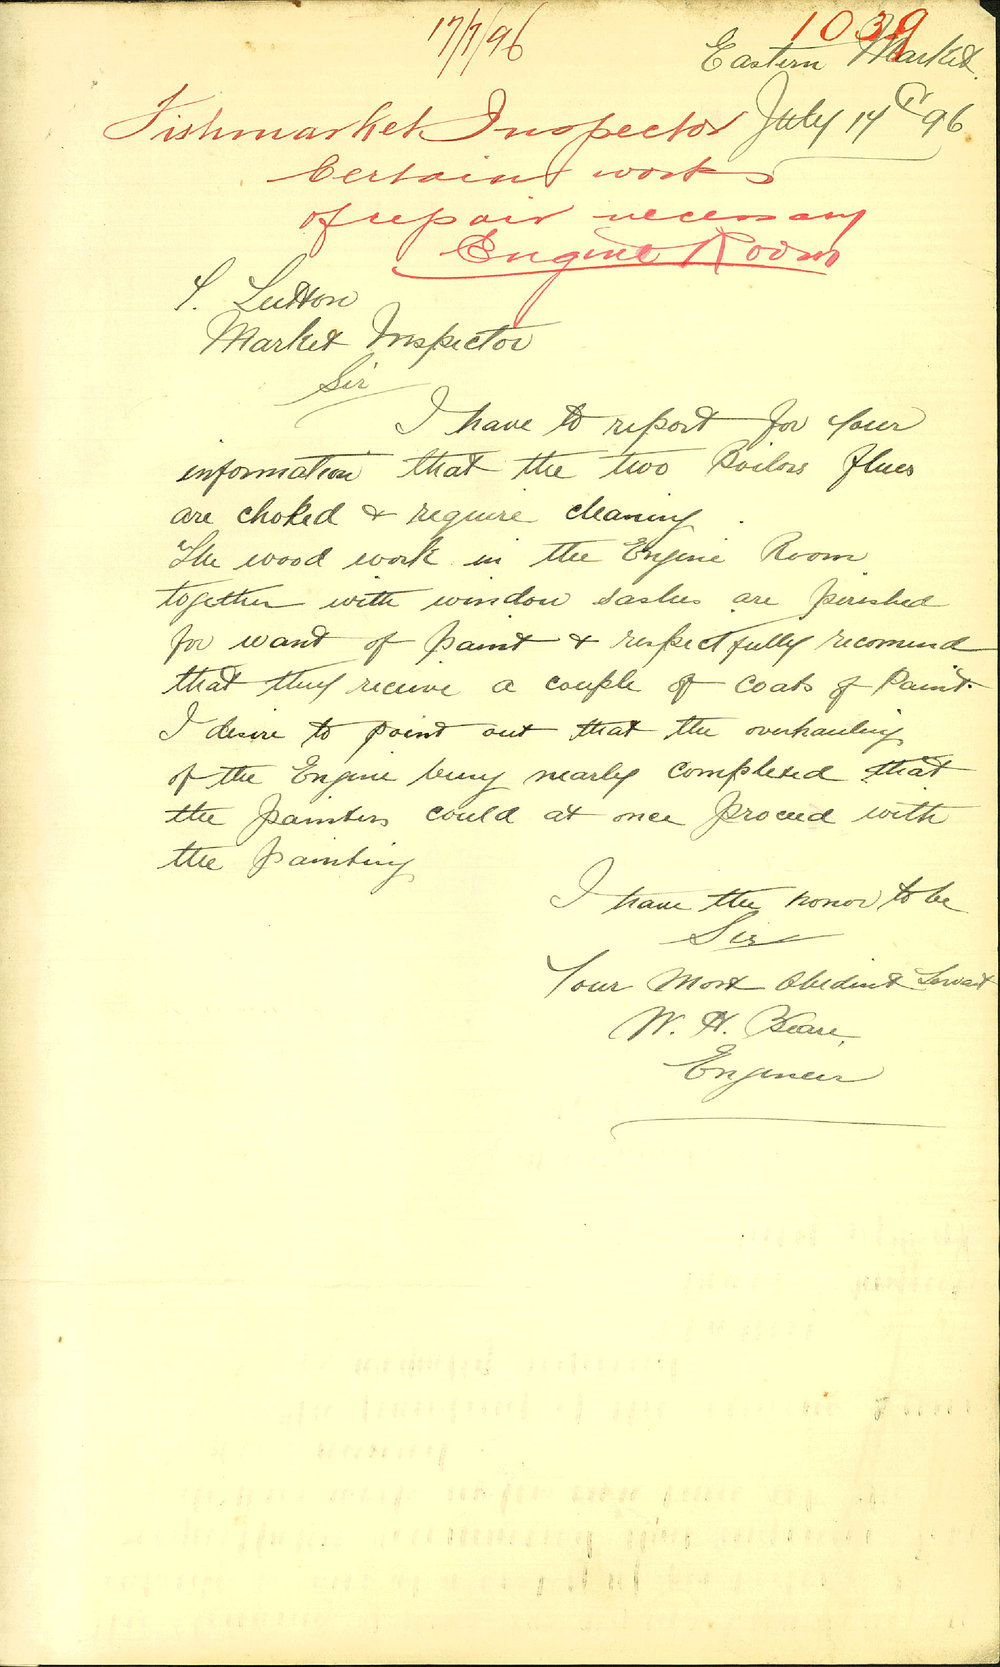 17/7/96
1039
Eastern Market
July 14th 96
Fishmarket Inspector
Certain works
of repair necessary
Engine Room
S. Lutton
Market Inspector
Sir
I have to report for your
information that the two Boilors flues
are choked & require cleaning.
The wood work in the Engine Room
together with window sashes are pirished
for want of paint & respectfully recomend
that they receive a couple of coats of Paint.
I desire to point out that the overhauling
of the Engine being nearly completed that
the painters could at once proceed with
the painting
I have the honor to be
Sir
Your Most Obedient Servant
W. H. Beare,
Engineer